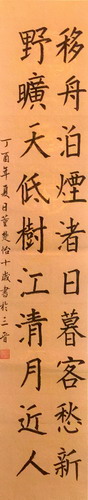 移舟泊煙渚日暮客愁新
野曠天低樹江清月近人
丁酉年夏日董楚怡十歲書於三晉